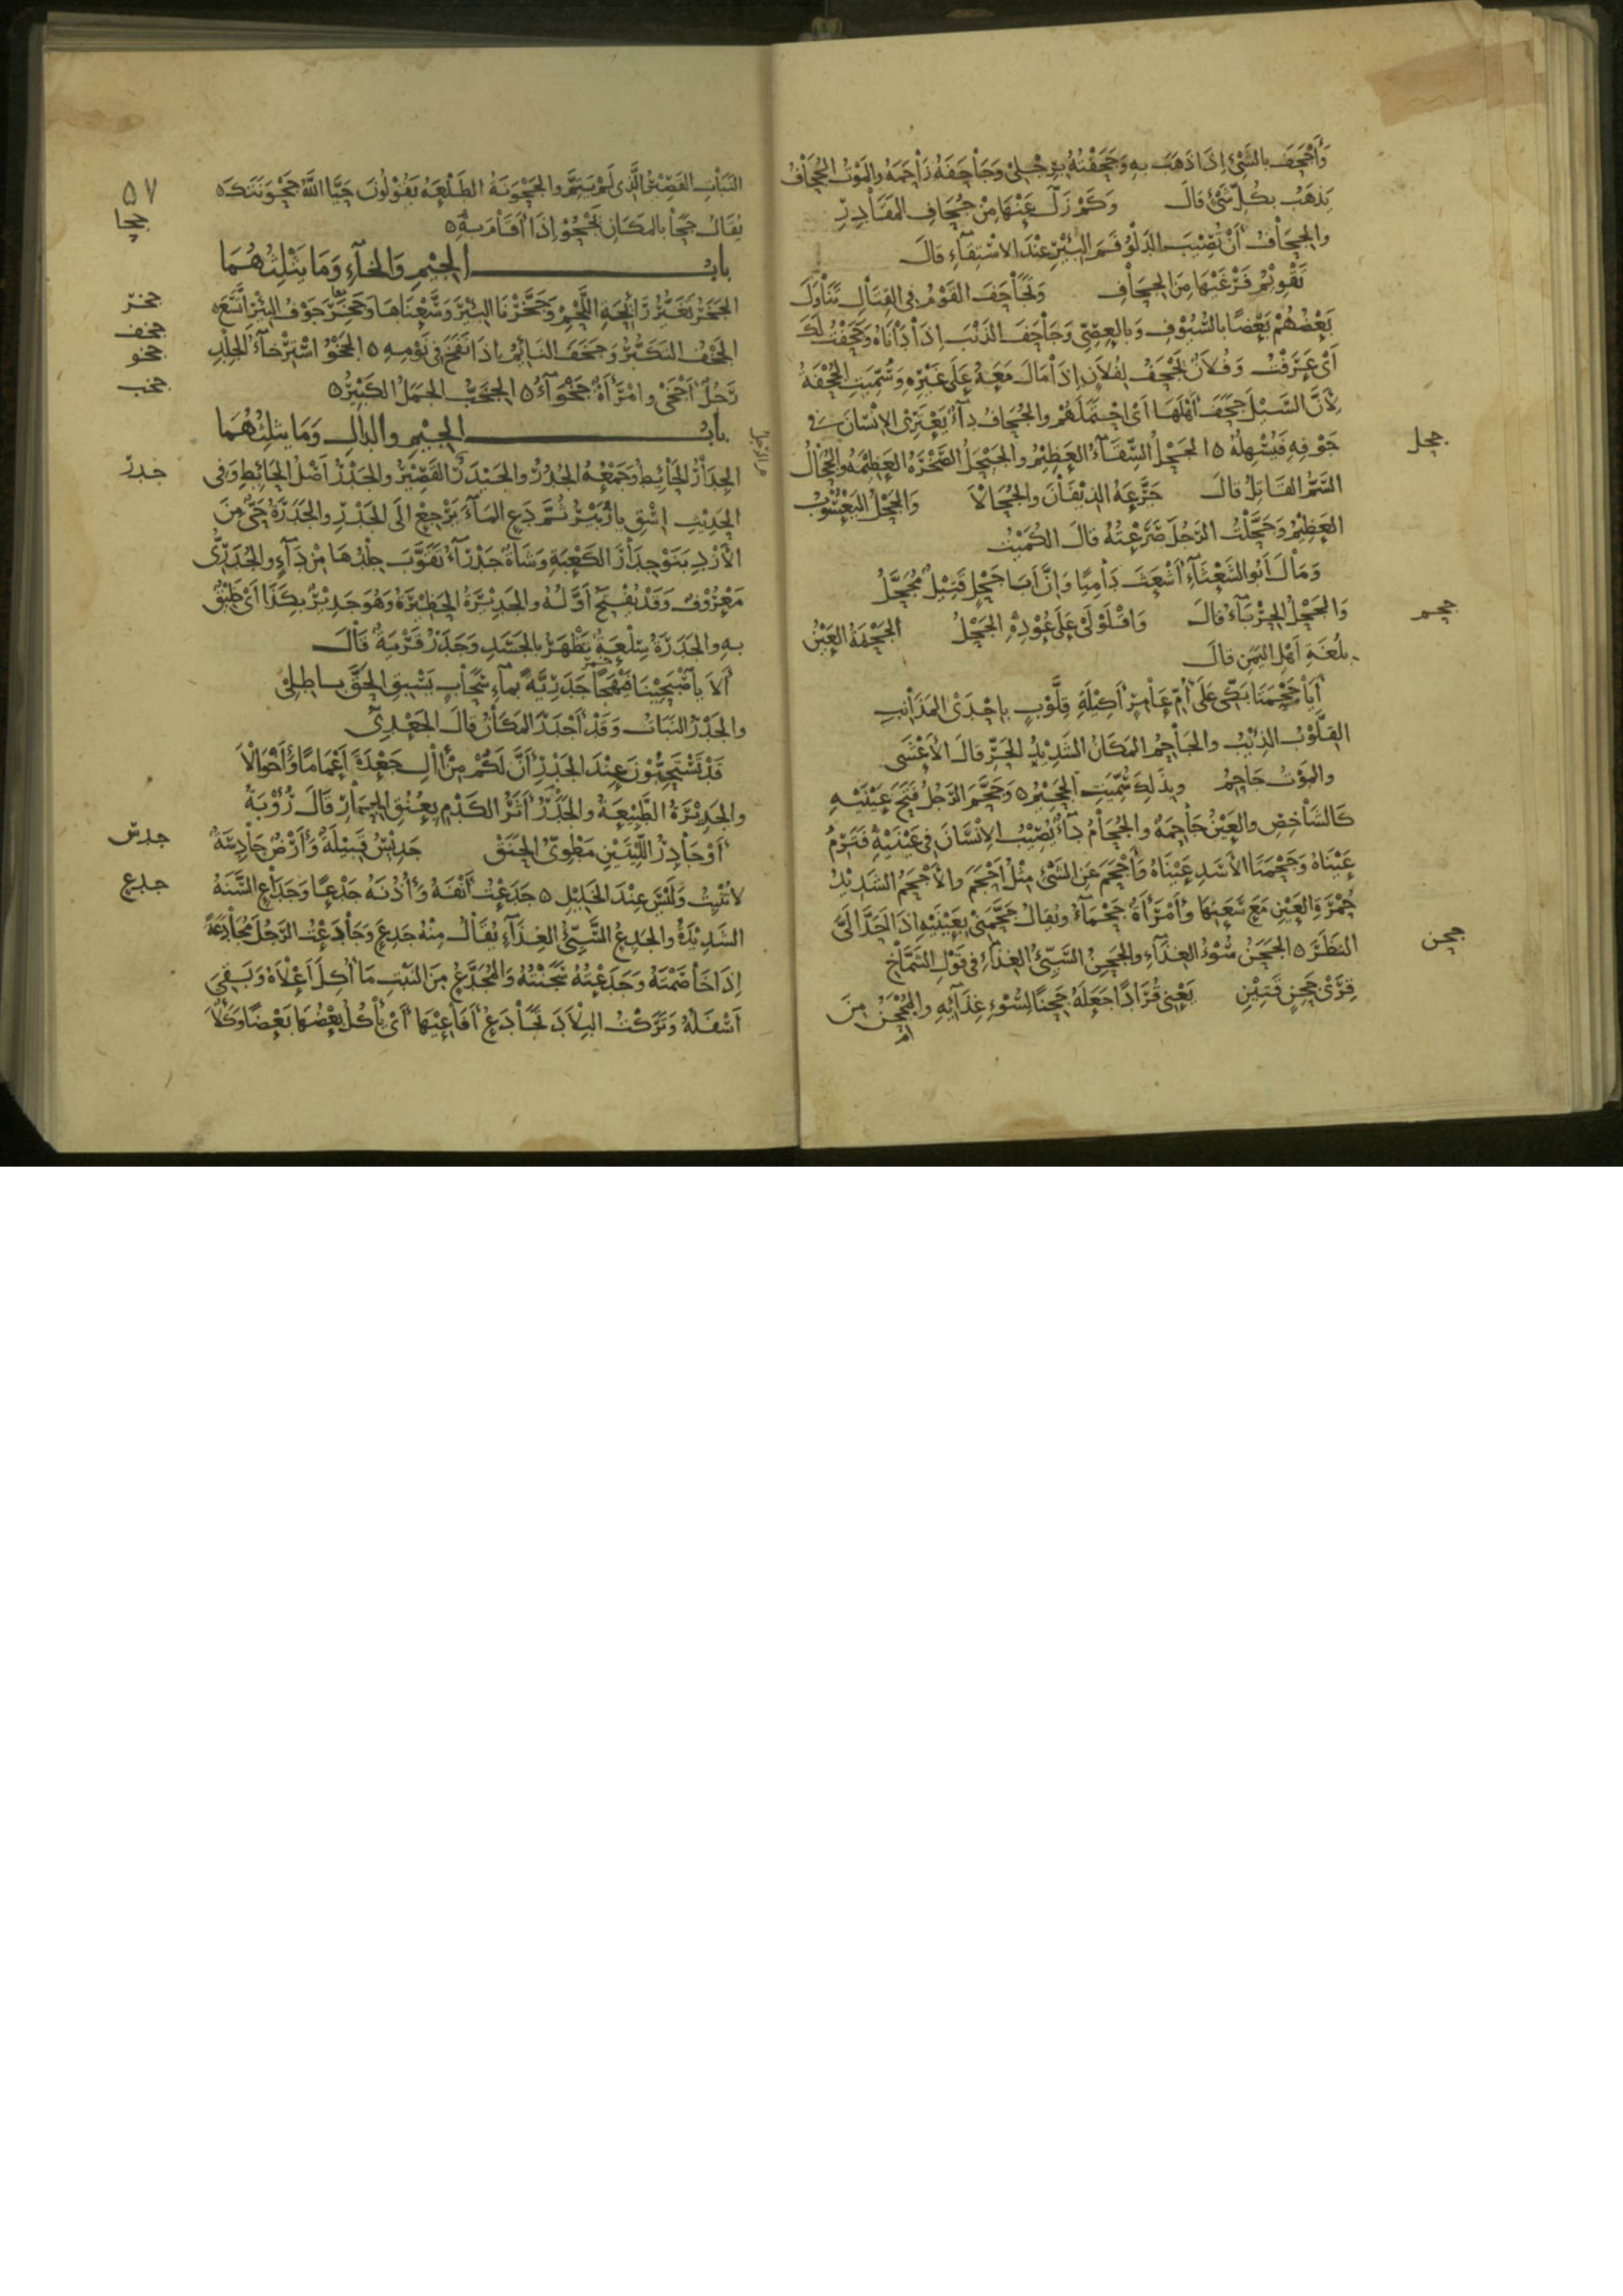 وَأَجْحَفَ بِالشَّيْءِ إِذَا ذَهَبَ بِهِ وَجَحَفْتُهُ بِرِجْلِي وَجَاحَفَهُ زَاحَمَهُ وَالمَوْتُ الجُحَافُ
يَذْهَبُ بِكُلِّ شَيْءٍ قَالَ وَكَمْ زَلَّ عَنْهَا مِنْ جُحَافِ المَقَادِرِ
وَالجِحَافُ أَنْ تُصِيبَ الدَّلْوُ فَمَ البِئْرِ عِنْدَ الاسْتِقَاءِ قَالَ
تَقْوِيمُ فَرْغَيْهَا مِنَ الجِحَافِ وَتَجَاحَفَ القَوْمُ فِي القِتَالِ تَنَاوَلَ
بَعْضُهُمْ بَعْضًا بِالسُّيُوفِ وَبِالعِصِيِّ وَجَاحَفَ الذَّنْبَ إِذَا دَانَاهُ وَجَحَفْتُ لَكَ
أَيْ غَرَفْتُ وَفُلَانٌ يُجْحِفُ لِفُلَانٍ إِذَا مَالَ مَعَهُ عَلَى غَيْرِهِ وَسُمِّيَتِ الجُحْفَةُ
لِأَنَّ السَّيْلَ جَحَفَ أَهْلَهَا أَيْ احْتَمَلَهُمْ وَالجُحَافُ دَاءٌ يَعْتَرِي الإِنْسَانَ فِي
جَوْفِهِ فَيُسْهِلُهُ ٥ الجَحْلُ السِّقَاءُ العَظِيمُ وَالجَيْحَلُ الصَّخْرَةُ العَظِيمَةُ وَالجُحَالُ
السَّمُّ القَاتِلُ قَالَ جَرَّعَهُ الذِّيفَانَ وَالجُحَالَا وَالجَحْلُ اليَعْسُوبُ
العَظِيمُ وَجَحَّلْتُ الرَّجُلَ صَرَعْتُهُ قَالَ الكُمَيْتُ
وَمَالَ أَبُو الشَّعْثَاءِ أَشْعَثَ دَامِيًا وَإِنَّ أَبَا جَحْلٍ قَتِيلٌ مُجَحَّلُ
وَالجَحْلُ الحِرْبَاءُ قَالَ وَاقْلَوْلَى عَلَى عُودِهِ الجَحْلُ الجَحْمَةُ العَيْنُ
بِلُغَةِ أَهْلِ اليَمَنِ قَالَ
أَيَا جَحْمَتَا بَكِّي عَلَى أُمِّ عَامِرٍ أَكِيلَةِ قِلَّوْبٍ بِإِحْدَى المَذَانِبِ
القِلَّوْبُ الذِّئْبُ وَالجَاحِمُ المَكَانُ الشَّدِيدُ الحَرِّ قَالَ الأَعْشَى
وَالمَوْتُ جَاحِمُ وَبِذَلِكَ سُمِّيَتِ الجَحِيمُ ٥ وَجَحَّمَ الرَّجُلُ فَتَحَ عَيْنَيْهِ
كَالشَّاخِصِ وَالعَيْنُ جَاحِمَةٌ وَالجُحَامُ دَاءٌ يُصِيبُ الإِنْسَانَ فِي عَيْنَيْهِ فَتَرِمُ
عَيْنَاهُ وَجَحْمَتَا الأَسَدِ عَيْنَاهُ وَأَجْحَمَ عَنِ الشَّيْءِ مِثْلُ أَحْجَمَ وَالأَجْحَمُ الشَّدِيدُ
حُمْرَةِ العَيْنِ مَعَ سَعَتِهَا وَامْرَأَةٌ جَحْمَاءُ وَيُقَالُ جَحَّمَنِي بِعَيْنَيْهِ إِذَا أَحَدَّ إِلَيَّ
النَّظَرَ ٥ الجَحَنُ سُوءُ الغِذَاءِ وَالجَحِنُ السَّيِّئُ الغِذَاءِ فِي قَوْلِ الشَّمَّاخِ
قِرَى جَحِنٍ قَتِينِ يَعْنِي قُرَادًا جَعَلَهُ جَحِنًا لِسُوءِ غِذَائِهِ وَالمُجْحَنُ مِنَ
جحل
جحم
جحن
النَّبَاتِ القَصِيرُ الَّذِي لَمْ يَتِمَّ وَالجَحْوَنَةُ الطَّلْعَةُ يَقُولُونَ حَيَّا اللَّهُ جَحْوَتَكَ ٥
يُقَالُ جَحَا بِالمَكَانِ يَجْحُو إِذَا أَقَامَ بِهِ ٥
بَابُ الجِيمِ وَالخَاءِ وَمَا يَثْلِثُهُمَا
الجَخَرُ تَغَيُّرُ رَائِحَةِ اللَّحْمِ وَجَخَّرْنَا البِئْرَ وَسَّعْنَاهَا وَجَخِرَ جَوْفُ البِئْرِ اتَّسَعَ ٥
الجَخْفُ التَّكَبُّرُ وَجَخَفَ النَّائِمُ إِذَا نَفَخَ فِي نَوْمِهِ ٥ الجَخْوُ اسْتِرْخَاءُ الجِلْدِ
رَجُلٌ أَجْخَى وَامْرَأَةٌ جَخْوَاءُ ٥ الجِخَبُّ الجَمَلُ الكَبِيرُ ٥
بَابُ الجِيمِ وَالدَّالِ وَمَا يَثْلِثُهُمَا
الجِدَارُ الحَائِطُ وَجَمْعُهُ الجُدُرُ وَالجَيْدَرُ القَصِيرُ وَالجَدْرُ أَصْلُ الحَائِطِ وَفِي
الحَدِيثِ اسْقِ يَا زُبَيْرُ ثُمَّ دَعِ المَاءَ يَرْجِعْ إِلَى الجَدْرِ وَالجَدَرَةُ حَيٌّ مِنَ
الأَزْدِ بَنَوْ جِدَارَ الكَعْبَةِ وَشَاةٌ جَدْرَاءُ تَقَوَّبَ جِلْدُهَا مِنْ دَاءٍ وَالجُدَرِيُّ
مَعْرُوفٌ وَقَدْ يُفْتَحُ أَوَّلُهُ وَالجَدِيرَةُ الحَظِيرَةُ وَهُوَ جَدِيرٌ بِكَذَا أَيْ خَلِيقٌ
بِهِ وَالجَدَرَةُ سِلْعَةٌ تَظْهَرُ بِالجَسَدِ وَجَدَرُ قَرْيَةٌ قَالَ
أَلَا يَا اصْبَحِينَا فَيْهَجًا جَدَرِيَّةً بِمَاءِ سَحَابٍ يَسْبِقِ الحَقَّ بَاطِلِي
وَالجَدْرُ النَّبَاتُ وَقَدْ أَجْدَرَ المَكَانُ قَالَ الجَعْدِيُّ
قَدْ تَسْتَحِبُّونَ عِنْدَ الجَدْرِ أَنَّ لَكُمْ مِنْ آلِ جَعْدَةَ أَعْمَامًا وَأَخْوَالَا
وَالجَدِيرَةُ الطَّبِيعَةُ وَالجَدَرُ أَثَرُ الكَدْمِ بِعُنُقِ الحِمَارِ قَالَ رُؤْبَةُ
أَوْ جَادِرُ اللِّيتَيْنِ مَطْوِيُّ الحَنَقْ جَدِيسُ قَبِيلَةٌ وَأَرْضٌ جَادِسَةٌ
لَا تُنْبِتُ وَلَيْسَ عِنْدَ الخَلِيلِ ٥ جَدَعْتُ أَنْفَهُ وَأُذُنَهُ جَدْعًا وَجَدَاعِ السَّنَةُ
الشَّدِيدَةُ وَالجَدِعُ السَّيِّئُ الغِذَاءِ يُقَالُ مِنْهُ جَدِعَ وَجَادَعْتُ الرَّجُلَ مُجَادَعَةً
إِذَا خَاصَمْتَهُ وَجَدَعْتُهُ سَجَنْتُهُ وَالمُجَدَّعُ مِنَ النَّبْتِ مَا أُكِلَ أَعْلَاهُ وَبَقِيَ
أَسْفَلُهُ وَتَرَكْتُ البِلَادَ تَجَادَعُ أَفَاعِيهَا أَيْ يَأْكُلُ بَعْضُهَا بَعْضًا وَكَلَأٌ
٥٧
جحا
جخر
جخف
جخو
جخب
جدر
جدس
جدع